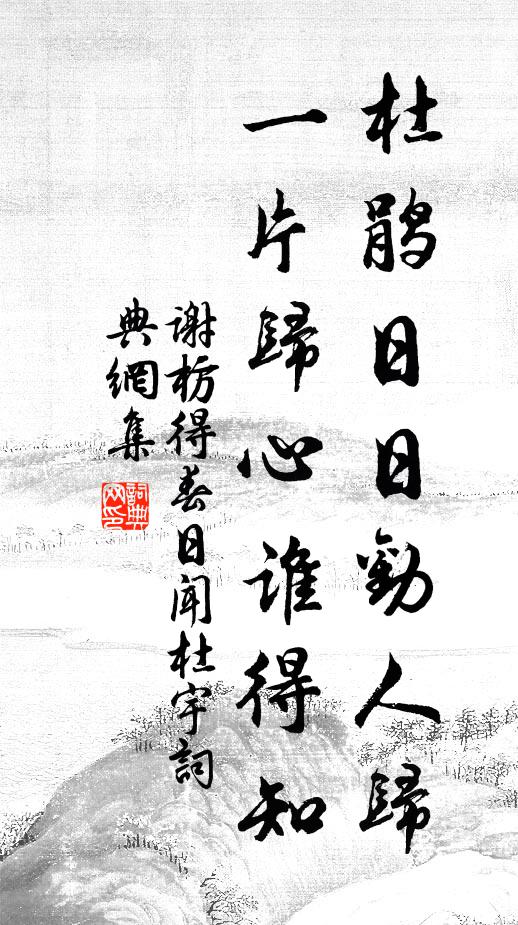 杜鹃日日劝人歸
一片歸心誰得知
谢枋得春日闻杜宇詞
典網集
詞典
网印